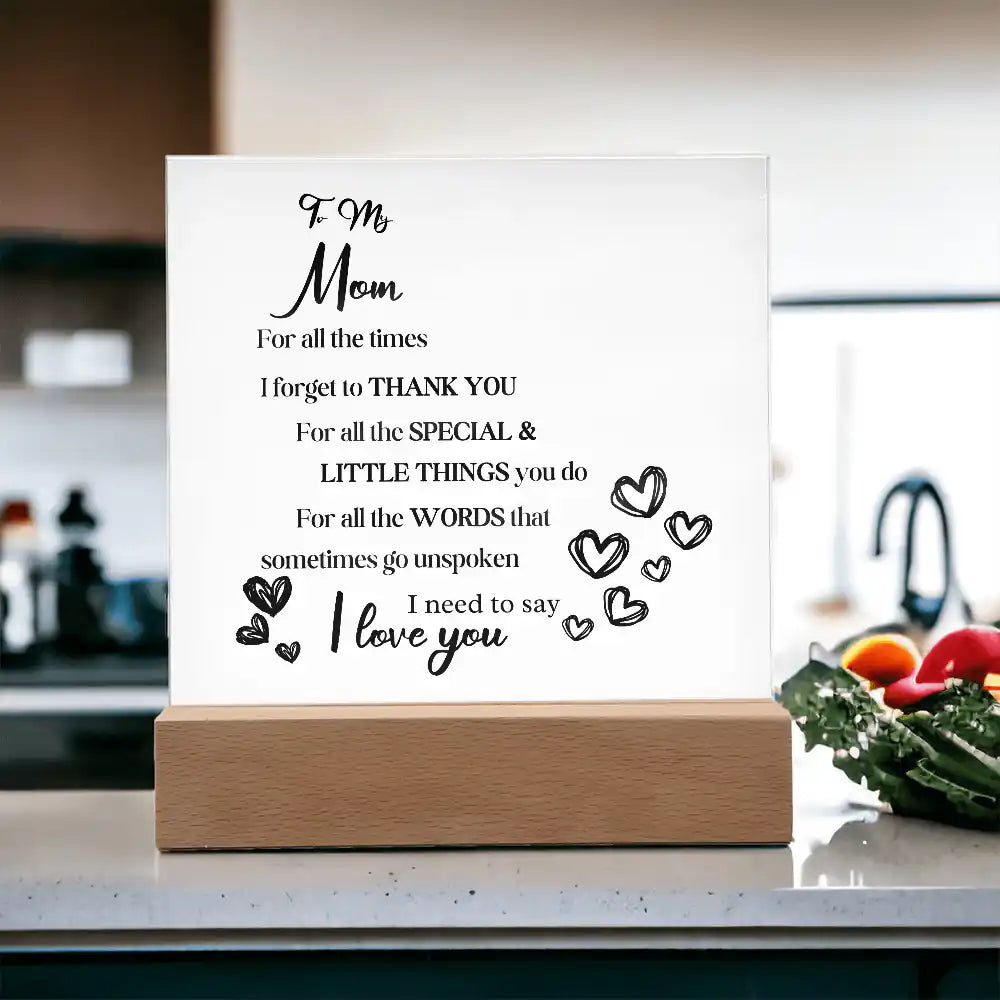 To My
Mom
For all the times
I forget to THANK YOU
For all the SPECIAL &
LITTLE THINGS you do
For all the WORDS that
sometimes go unspoken
I need to say
I love you